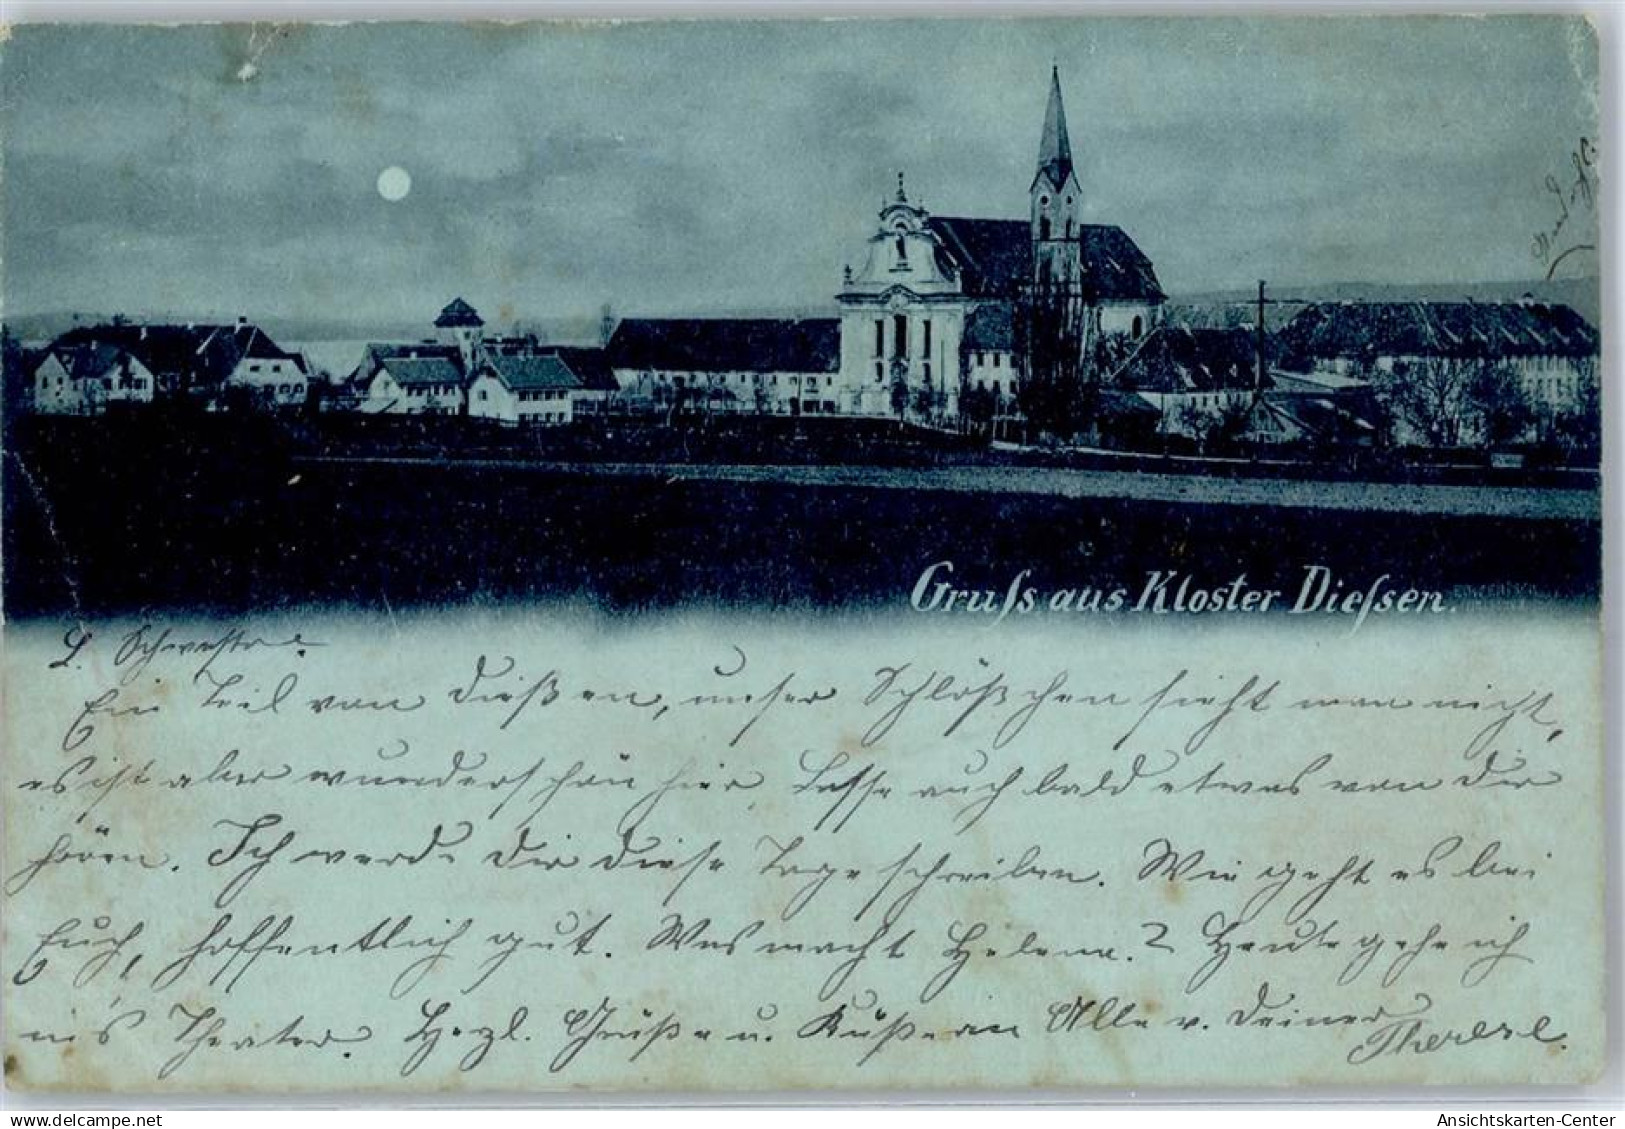 Gruſs aus Kloster Dieſsen.
L. Schwester
Ein Teil von Dießen, unser Schlößchen sieht man nicht,
es ist aber wunderschön hier. Lasse auch bald etwas von Dir
hören. Ich werde Dir diese Tage schreiben. Wie geht es bei
Euch, hoffentlich gut. Was macht Helene? Heute gehe ich
ins Theater. Herzl. Grüße u. Küße an Alle v. Deiner
Therese.
www.delcampe.net
Ansichtskarten-Center